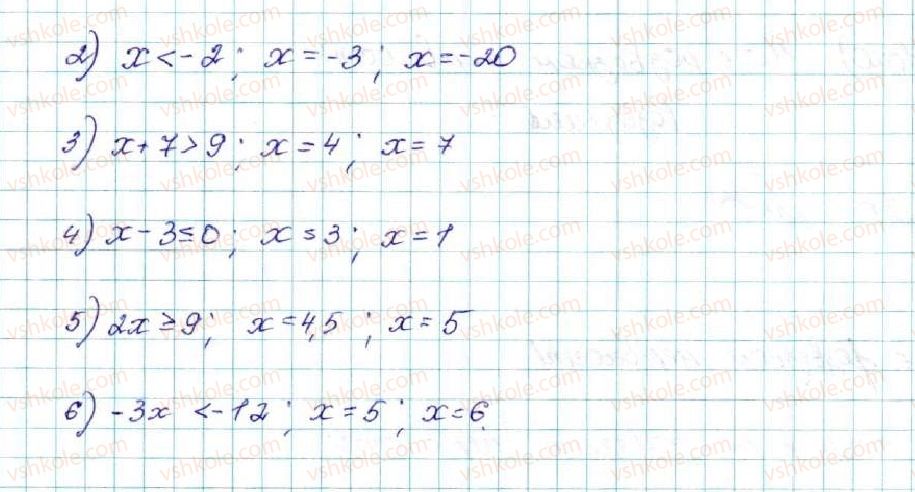 2) x < -2; x = -3; x = -20
3) x + 7 > 9; x = 4; x = 7
4) x - 3 ≤ 0; x ≤ 3; x = 1
5) 2x ≥ 9; x = 4,5; x = 5
6) -3x < -12; x = 5; x = 6.
vshkole.com